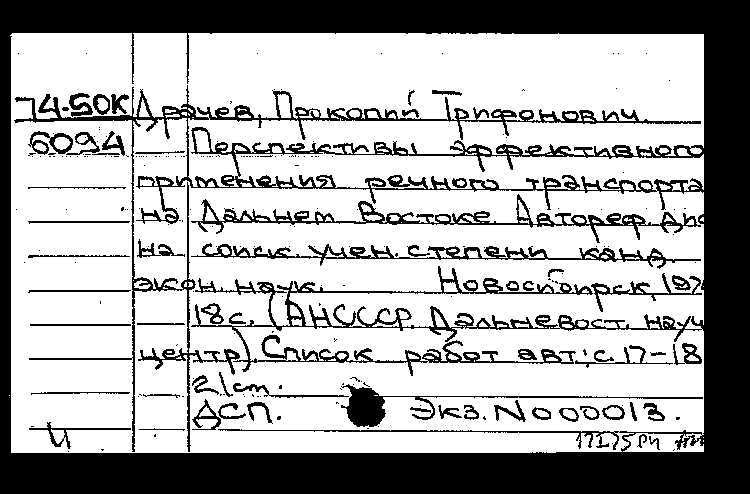 74-50К Драчев, Прокопий Трифонович.
6094 Перспективы эффективного
применения речного транспорта
на Дальнем Востоке. Автореф. дис
на соиск. учен. степени канд.
экон. наук. Новосибирск, 197
18 с. (АНСССР. Дальневост. науч
центр). Список работ авт.: с. 17-18
ДСП. Экз. № 000013.
И